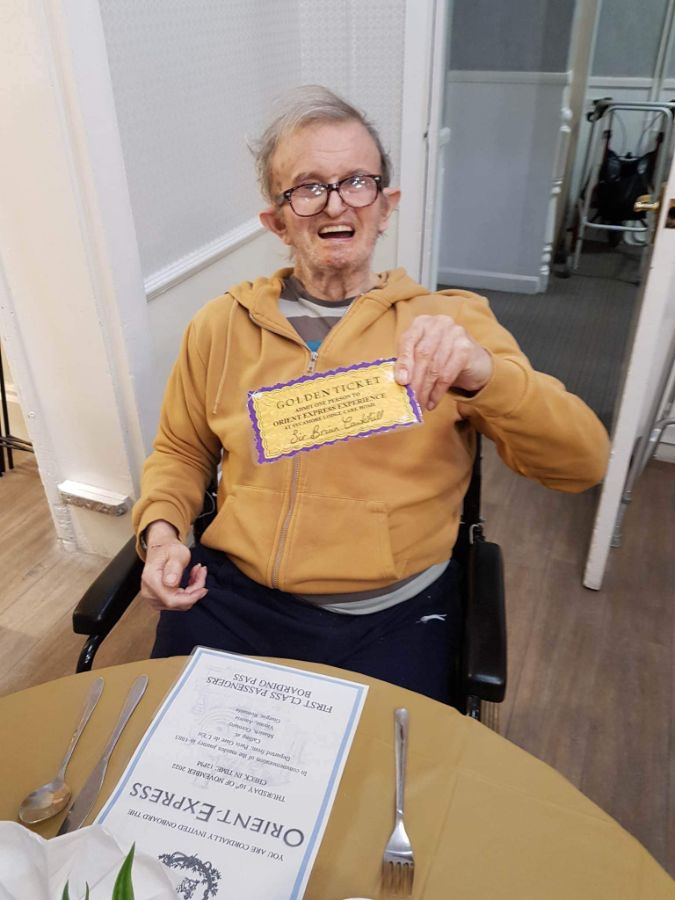 GOLDEN TICKET
ADMIT ONE PERSON TO
ORIENT EXPRESS EXPERIENCE
AT SYCAMORE LODGE CARE HOME
Sir Brian
YOU ARE CORDIALLY INVITED ONBOARD THE
ORIENT-EXPRESS
THURSDAY 10th OF NOVEMBER 2022
CHECK IN TIME: 12PM
In commemoration of the maiden journey in 1883
Departed from: Paris Gare de L'Est
Calling at
Munich, Germany
Vienna, Austria
Giurgiu, Romania
FIRST CLASS PASSENGERS
BOARDING PASS